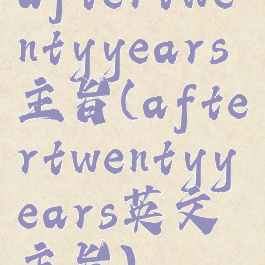 aftertwe
ntyyears
主旨(afte
rtwentyy
ears英文
主旨)